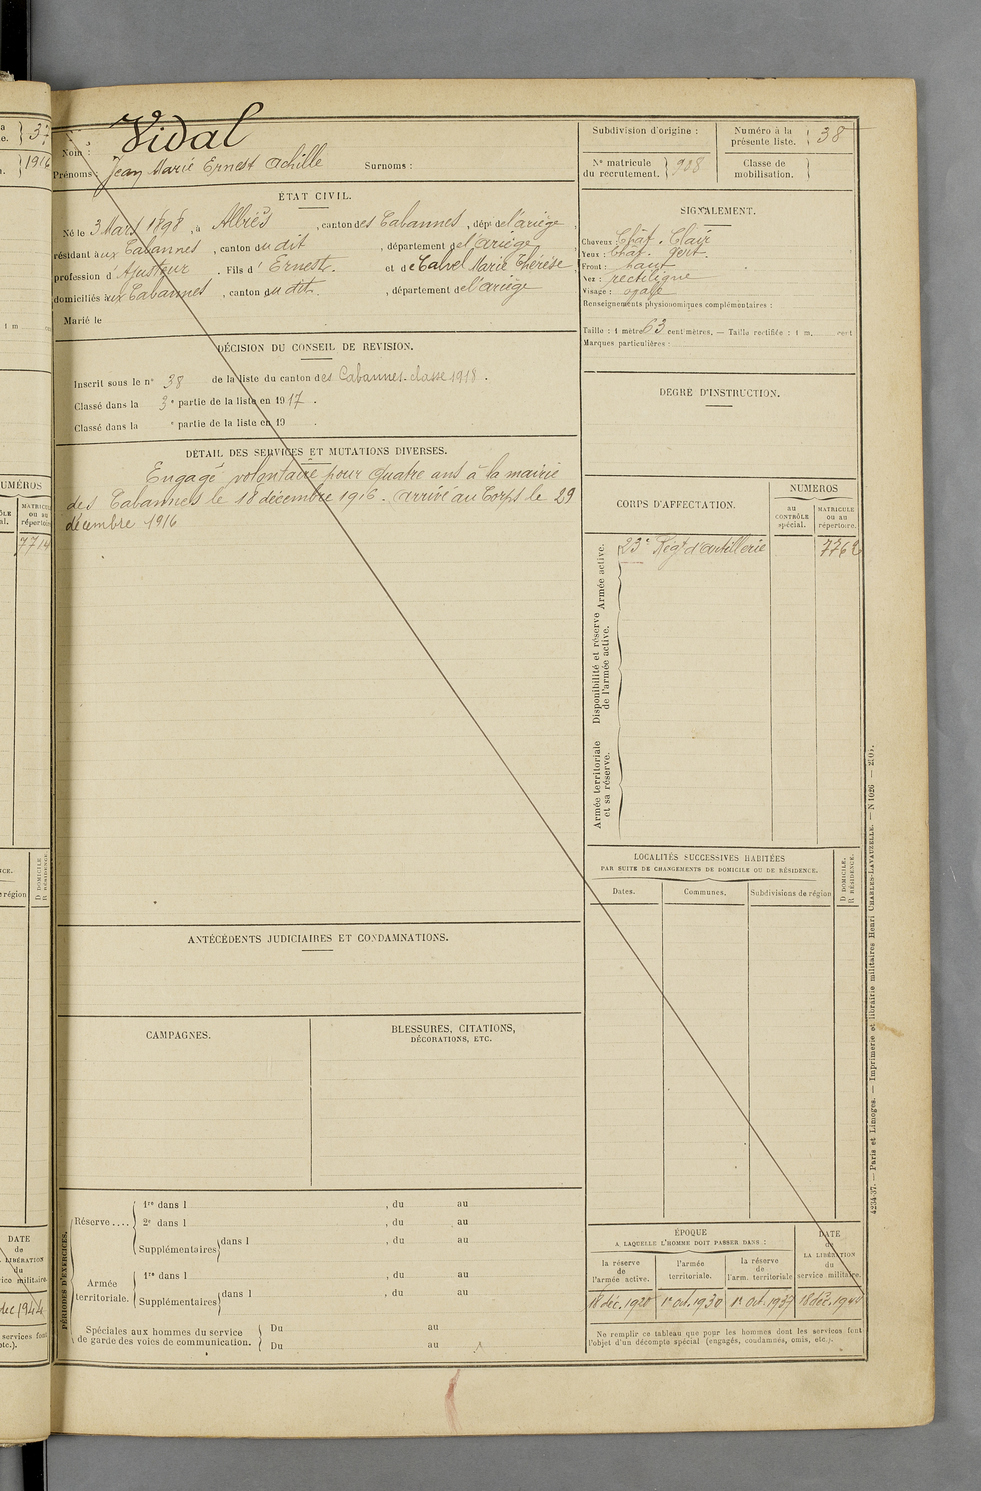 Nom : Vidal
Prénoms : Jean Marie Ernest Achille Surnoms :
ÉTAT CIVIL.
Né le 3 Mars 1898, à Albiès, canton des Cabannes, dépt de l'ariège,
résidant à ux Cabannes, canton du dit, département de l'ariège
profession d'Ajusteur. Fils d'Ernest. et de Calvel Marie Thérèse
domiciliés aux Cabannes, canton du dit., département de l'ariège
Marié le
DÉCISION DU CONSEIL DE REVISION.
Inscrit sous le n° 38 de la liste du canton des Cabannes. classe 1918.
Classé dans la 3e partie de la liste en 1917.
Classé dans la e partie de la liste en 19 .
DÉTAIL DES SERVICES ET MUTATIONS DIVERSES.
Engagé volontaire pour quatre ans à la mairie
des Cabannes le 18 décembre 1916. arrivé au Corps le 29
décembre 1916
ANTÉCÉDENTS JUDICIAIRES ET CONDAMNATIONS.
CAMPAGNES.
BLESSURES, CITATIONS,
DÉCORATIONS, ETC.
PÉRIODES D'EXERCICES.
Réserve....
1re dans l , du au
2e dans l , du au
Supplémentaires dans l , du au
Armée
territoriale.
1re dans l , du au
Supplémentaires dans l , du au
Spéciales aux hommes du service
de garde des voies de communication.
Du au
Du au
Subdivision d'origine :
Numéro à la
présente liste. 38
N° matricule
du recrutement. 908
Classe de
mobilisation.
SIGNALEMENT.
Cheveux Chât. Clair
Yeux : Chât. Vert.
Front : haut
Nez : rectiligne
Visage : ovale
Renseignements physionomiques complémentaires :
Taille : 1 mètre 63 centimètres. — Taille rectifiée : 1 m. cent
Marques particulières :
DEGRÉ D'INSTRUCTION.
CORPS D'AFFECTATION.
NUMÉROS
au
CONTRÔLE
spécial.
MATRICULE
ou au
répertoire.
Armée active.
23e Régt d'artillerie 7762
Disponibilité et réserve
de l'armée active.
Armée territoriale
et sa réserve.
LOCALITÉS SUCCESSIVES HABITÉES
PAR SUITE DE CHANGEMENTS DE DOMICILE OU DE RÉSIDENCE.
D DOMICILE.
R RÉSIDENCE.
Dates. Communes. Subdivisions de région
ÉPOQUE
A LAQUELLE L'HOMME DOIT PASSER DANS :
la réserve
de
l'armée active.
l'armée
territoriale.
la réserve
de
l'arm. territoriale
DATE
de
LA LIBÉRATION
du
service militaire.
18 déc. 1920 1er oct. 1930 1er oct. 1937 18 déc. 1944
Ne remplir ce tableau que pour les hommes dont les services font
l'objet d'un décompte spécial (engagés, condamnés, omis, etc.).
4234-37. — Paris et Limoges. — Imprimerie et librairie militaires Henri CHARLES-LAVAUZELLE. — N 1026
37
1916
1 m
NUMÉROS
MATRICULE
ou au
répertoire
7714
D DOMICILE
R RÉSIDENCE
région
DATE
de
LIBÉRATION
du
service militaire.
déc 1944
services font
etc.).